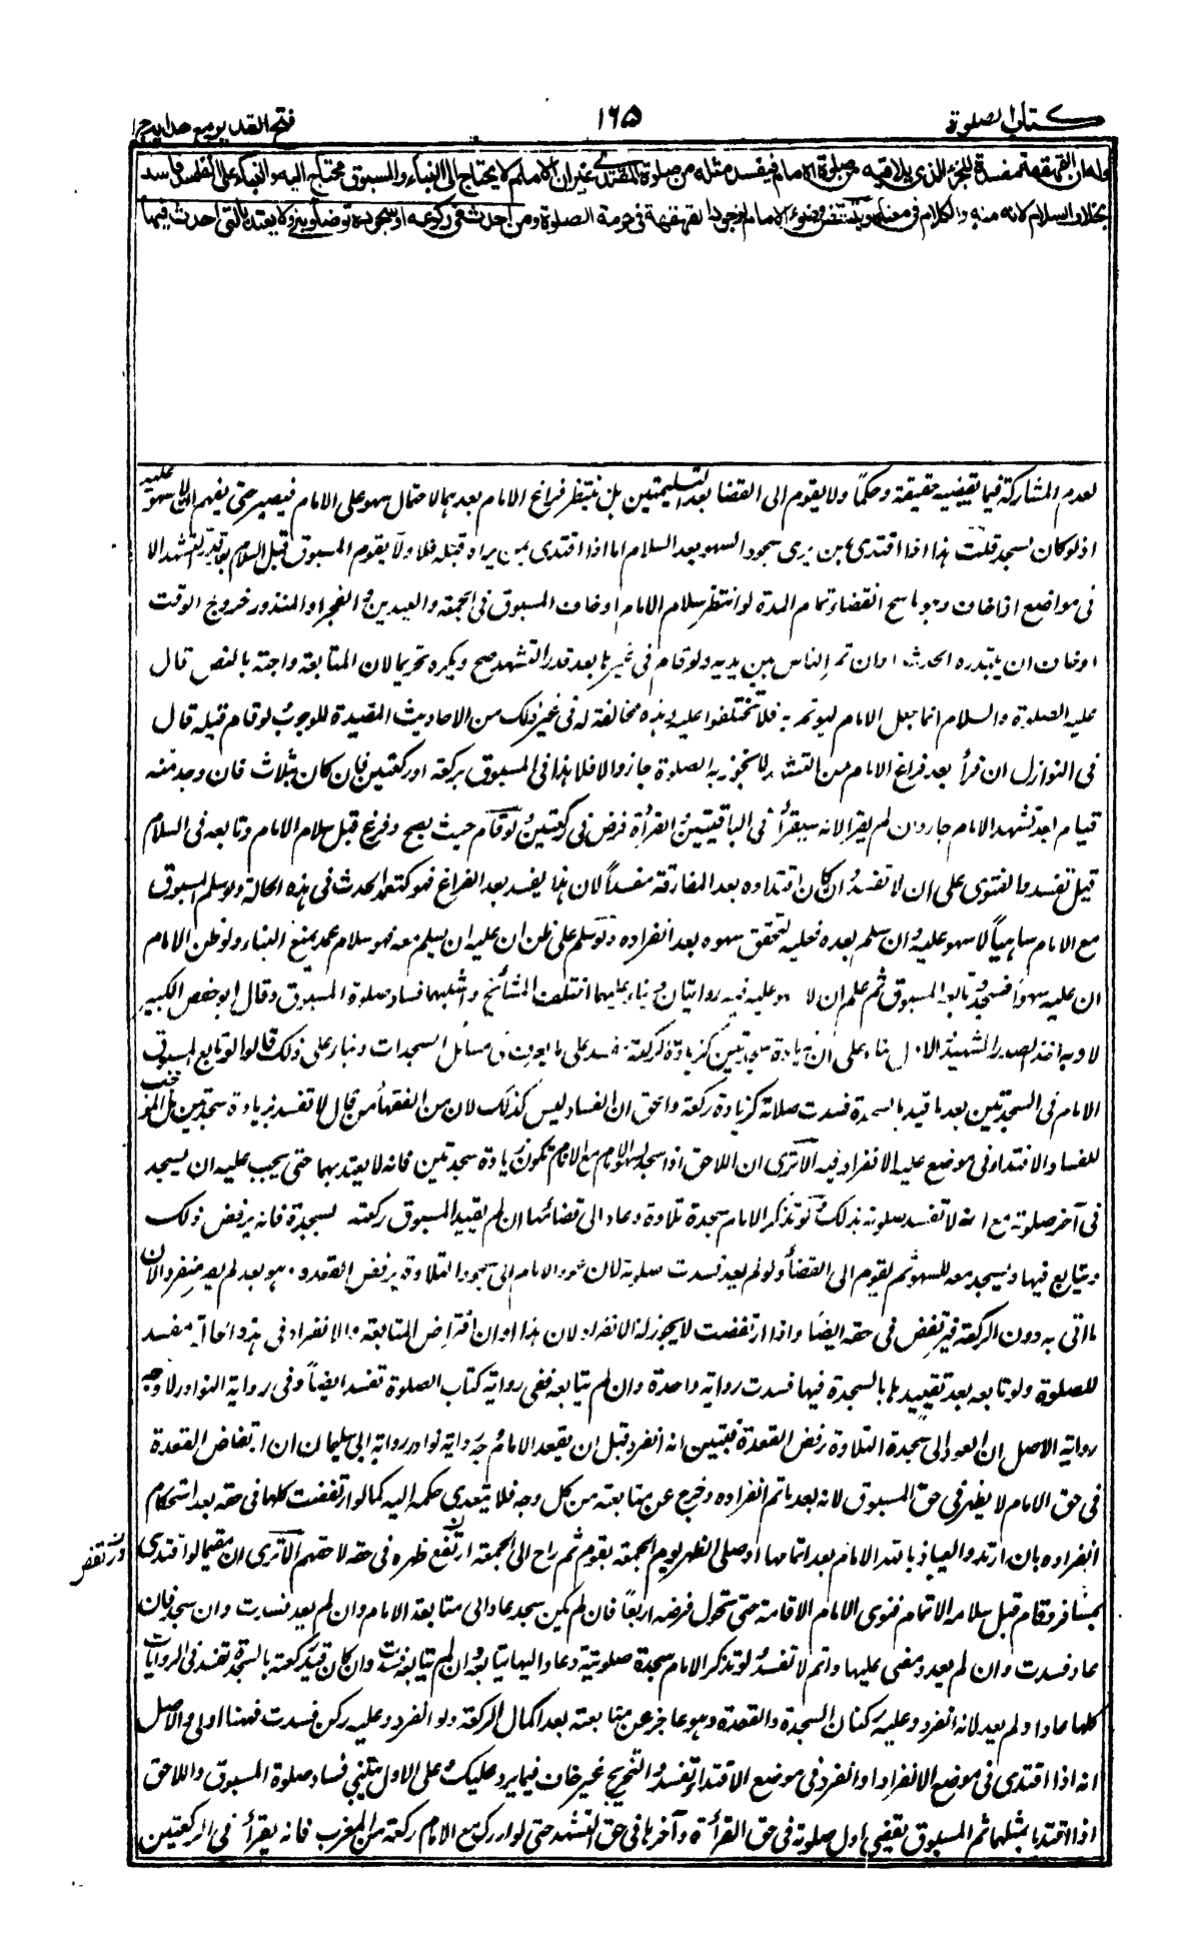 كتاب الصلوة
١٦٥
فتح القدير مع هدايه ج ١
وله ان القهقهة مفسدة للجزء الذى يلاقيه من صلوة الامام فيفسد مثله من صلوة المقتدى غير ان الامام لا يحتاج الى البناء والمسبوق محتاج اليه والبناء على الفاسد فاسد
بخلاف السلام لانه منه والكلام فى معناه وينتقض وضوء الامام لوجود القهقهة فى حرمة الصلوة ومن احدث فى ركوعه او سجوده توضأ وبنى ولا يعتد بالتى احدث فيها
لعدم المشاركة فيما يقضيه حقيقة وحكمًا ولا يقوم الى القضا بعد التسليمتين بل ينتظر فراغ الامام بعدهما لاحتمال سهو على الامام فيصبر حتى يفهم ان لا سهو عليه
اذ لو كان لسجد قلت هذا اذا اقتدى بمن يرى سجود السهو بعد السلام اما اذا اقتدى بمن يراه قبله فلا ولا يقوم المسبوق قبل السلام بعد قدر التشهد الا
فى مواضع اذا خاف وهو ماسح انقضاء تمام المدة لو انتظر سلام الامام او خاف المسبوق فى الجمعة والعيدين والفجر او المعذور خروج الوقت
او خاف ان يبتدره الحدث او ان تمر الناس بين يديه ولو قام فى غيرها بعد قدر التشهد صح ويكره تحريما لان المتابعة واجبة بالنص قال
عليه الصلوة والسلام انما جعل الامام ليؤتم به فلا تختلفوا عليه وهذه مخالفة له فى غير ذلك من الاحاديث المفيدة للوجوب لو قام قبله قال
فى النوازل ان قرأ بعد فراغ الامام من التشهد ما تجوز به الصلوة جاز والا فلا هذا فى المسبوق بركعة او ركعتين فان كان بثلاث فان وجد منه
قيام بعد تشهد الامام جاز وان لم يقرا لانه سيقرأ فى الباقيتين والقرأة فرض فى ركعتين ولو قام حيث يصح وفرغ قبل سلام الامام وتابعه فى السلام
قيل تفسد والفتوى على ان لا تفسد وان كان اقتداءه بعد المفارقة مفسداً لان هذا يفسد بعد الفراغ فهو كتعمد الحدث فى هذه الحالة ولو سلم المسبوق
مع الامام ساهياً لا سهو عليه وان سلم بعده فعليه لتحقق سهوه بعد انفراده ولو سلم على ظن ان عليه ان يسلم معه فهو سلام عمد يمنع البناء ولو ظن الامام
ان عليه سهوا فسجد وتابعه المسبوق ثم علم ان لا سهو عليه فيه روايتان وبناء عليهما اختلف المشائخ واشبههما فساد صلوة المسبوق وقال ابو حفص الكبير
لا وبه اخذ الصدر الشهيد والاول بناء على ان زيادة سجدتين كزيادة ركعة مفسد على ما يعرف فى مسائل السجدات وبناء على ذلك قالوا لو تابع المسبوق
الامام فى السجدتين بعد ما قيد بالسجدة فسدت صلاته كزيادة ركعة والحق ان الفساد ليس كذلك لان من الفقهاء من قال لا تفسد بزيادة سجدتين بل الموجب
للفساد الاقتداء فى موضع عليه الانفراد فيه الا ترى ان اللاحق اذا سجد لسهو الامام مع الامام تكون زيادة سجدتين فانه لا يعتد بهما حتى يجب عليه ان يسجد
فى آخر صلوته مع انه لا تفسد صلوته بذلك ولو تذكر الامام سجدة تلاوة وعاد الى قضائها ان لم يقيد المسبوق ركعته بسجدة فانه يرفض ذلك
ويتابع فيها ويسجد معه للسهو ثم يقوم الى القضاء ولو لم يعد فسدت صلوته لان عود الامام الى سجود التلاوة يرفض القعدة وهو بعد لم يصر منفردا لان
ما اتى به دون الركعة فيرتفض فى حقه ايضا واذا ارتفضت لا يجوز له الانفراد لان هذا اوان افتراض المتابعة والانفراد فى هذه الحالة مفسد
للصلوة ولو تابعه بعد تقييدها بالسجدة فيها فسدت رواية واحدة وان لم يتابعه ففى رواية كتاب الصلوة تفسد ايضاً وفى رواية النوادر لا وجه
رواية الاصل ان العود الى سجدة التلاوة يرفض القعدة فتبين انه انفرد قبل ان يقعد الامام وجه رواية نوادر رواية ابى سليمان ان ارتفاض القعدة
فى حق الامام لا يظهر فى حق المسبوق لانه بعد ما تم انفراده وخرج عن متابعته من كل وجه فلا يتعدى حكمه اليه كما لو ارتفضت كلها فى حقه بعد استحكام
انفراده بان ارتد والعياذ بالله الامام بعد اتمامها او صلى الظهر يوم الجمعة بقوم ثم راح الى الجمعة ارتفض ظهره فى حقه لا حقهم الا ترى ان مقيما لو اقتدى
بمسافر وقام قبل سلامه الاتمام فنوى الامام الاقامة حتى تحول فرضه اربعاً فان لم يكن سجد عاد الى متابعة الامام وان لم يعد فسدت وان سجد فان
عاد فسدت وان لم يعد ومضى عليها واتم لا تفسد ولو تذكر الامام سجدة صلوتية وعاد اليها يتابعه وان لم يتابعه فسدت وان كان قيد ركعته بالسجدة تفسد فى الروايات
كلها عاد او لم يعد لانه انفرد وعليه ركنان السجدة والقعدة وهو عاجز عن متابعته بعد اكمال الركعة ولو انفرد وعليه ركن فسدت فههنا اولى والاصل
انه اذا اقتدى فى موضع الانفراد او انفرد فى موضع الاقتداء تفسد والتخريج غير خاف فيما يرد عليك وعلى الاول ينبنى فساد صلوة المسبوق واللاحق
اذا اقتديا بمثلهما ثم المسبوق يقضى اول صلوته فى حق القرأة وآخرها فى حق التشهد حتى لو ادرك مع الامام ركعة من المغرب فانه يقرأ فى الركعتين